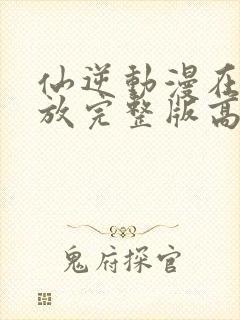 仙逆動漫在
放完整版高
鬼府探官